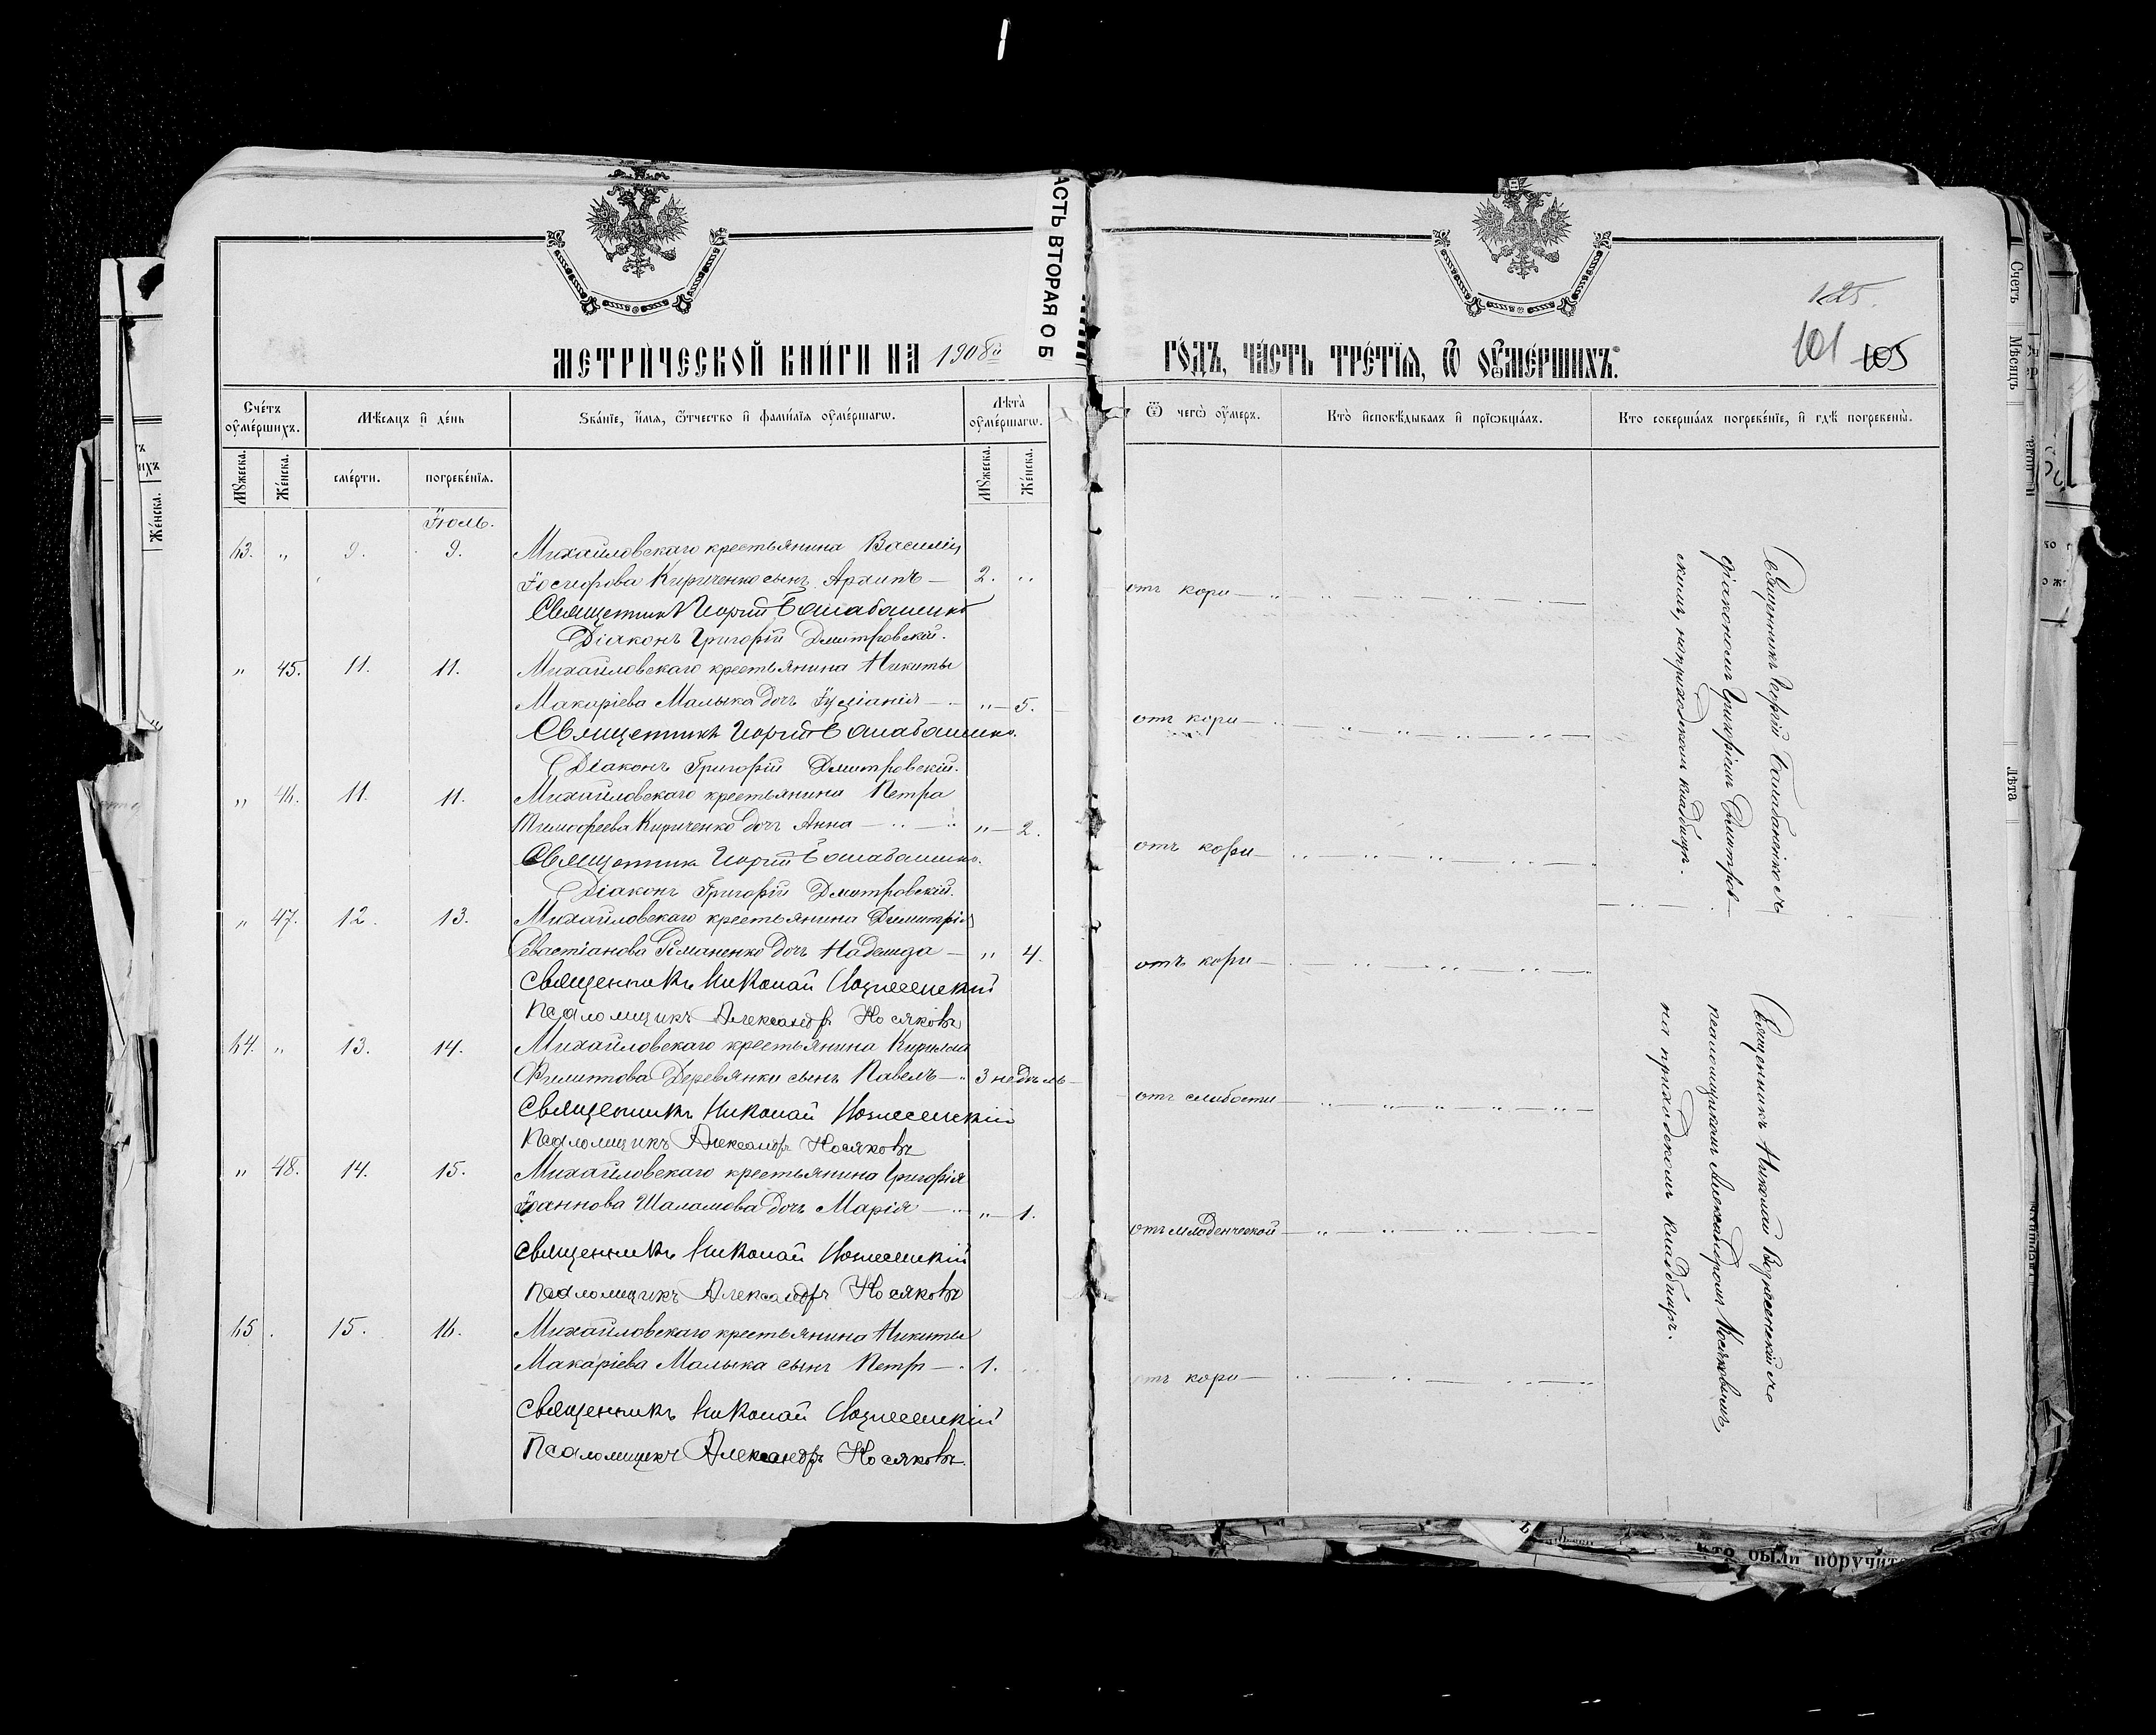 АСТЬ ВТОРАЯ О Б
МЕТРИЧЕСКОЙ КНИГИ НА 1908й
ГОДЪ, ЧАСТЬ ТРЕТІЯ, Ѿ ОУМЕРШИХЪ.
125.
101 105
Счетъ оумершихъ.
Мѣсяцъ и день
Званіе, имя, ѿчество и фамилія оумершагѡ.
Лѣта оумершагѡ.
Ѿ чегѡ оумеръ.
Кто исповѣдывалъ и пріѡбщалъ.
Кто совершалъ погребеніе, и гдѣ погребены.
Мужеска.
Женска.
смерти.
погребенія.
Мужеска.
Женска.
Іюль.
63. „ 9. 9. Михайловскаго крестьянина Василія
Іосифова Кириченко сынъ Архипъ — 2. „ отъ кори
Священникъ Балабаненко
Діаконъ Григорій Дмитровскій.
„ 45. 11. 11. Михайловскаго крестьянина Никиты
Макаріева Малыка дочь Іуліанія — „ — 5. отъ кори
Священникъ Балабаненко.
Діаконъ Григорій Дмитровскій.
„ 46. 11. 11. Михайловскаго крестьянина Петра
Тимофеева Кириченко дочь Анна — „ — 2. отъ кори
Священникъ Балабаненко.
Діаконъ Григорій Дмитровскій.
„ 47. 12. 13. Михайловскаго крестьянина Димитрія
Севастіанова дочь Надежда — „ 4. отъ кори
Священникъ Николай Вознесенскій
Псаломщикъ Александръ Носяковъ
64. „ 13. 14. Михайловскаго крестьянина Кирилла
Филиппова Деревянки сынъ Павелъ — 3 недѣль — отъ слабости
Священникъ Николай Вознесенскій
Псаломщикъ Александръ Носяковъ
„ 48. 14. 15. Михайловскаго крестьянина Григорія
Іоаннова Шаламова дочь Марія — „ — 1. отъ младенческой
Священникъ Николай Вознесенскій
Псаломщикъ Александръ Носяковъ
65. 15. 16. Михайловскаго крестьянина Никиты
Макаріева Малыка сынъ Петръ — 1. отъ кори
Священникъ Николай Вознесенскій
Псаломщикъ Александръ Носяковъ.
Священникъ Балабаненко съ
діакономъ Григоріемъ Дмитров-
скимъ, на приходскомъ кладбищѣ.
Священникъ Николай Вознесенскій съ
псаломщикомъ Александромъ Носяковымъ
на приходскомъ кладбищѣ.
Счетъ
Мѣсяцъ
Лѣта
Женска.
кто были поручит